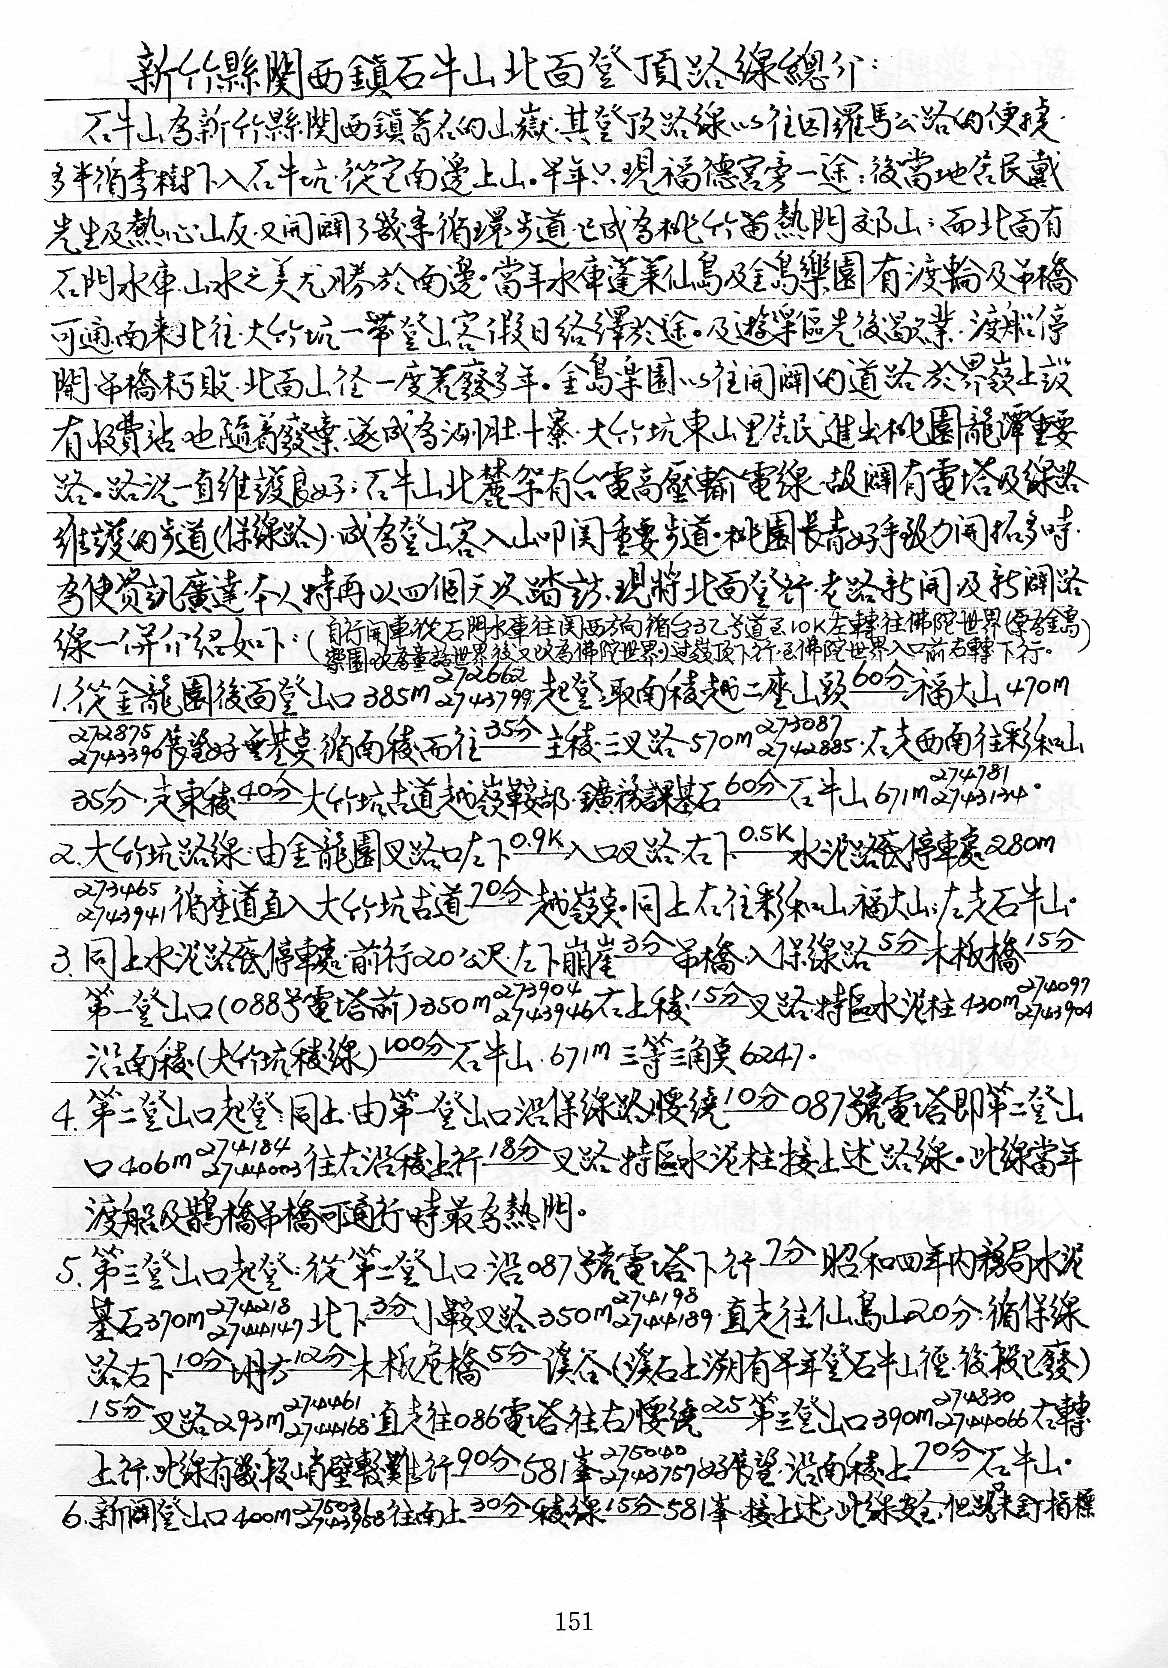 新竹縣関西鎮石牛山北面登頂路線總介:
石牛山為新竹縣関西鎮著名的山嶽.其登頂路線以往因羅馬公路的便捷.
多半循李樹下入石牛坑.從它南邊上山。早年只現福德宮旁一途;後當地居民戴
先生及熱心山友.又開闢了幾条循環步道.已成為桃竹苗熱門郊山;而北面有
石門水庫.山水之美尤勝於南邊。當年水庫蓬萊仙島及金鳥樂園有渡輪及吊橋
可通.南来北往.大竹坑一帶登山客假日絡繹於途。及遊楽區先後歇業.渡船停
開.吊橋朽敗.北面山徑一度荒廢多年。金鳥楽園以往開闢的道路於界嶺上設
有收費站也隨著廢棄.遂成為湖肚.十寮.大竹坑東山里居民進出桃園龍潭重要
路。路況一直維護良好;石牛山北麓架有台電高壓輸電線.故闢有電塔及線路
維護的步道(保線路).成為登山客入山叩関重要步道。桃園長青好手致力開拓多時.
為使資訊廣達.本人特再以四個天次踏訪.現將北面登行.老路新開及新闢路
線一併介紹如下:(自行開車從石門水庫往関西方向循台3乙号道至10K左轉往佛陀世界(原為金鳥
樂園.改為童話世界後又改為佛陀世界)過嶺頂下行.至佛陀世界入口前右轉下行。)
1.從金龍園後面登山口385m 272662 2743799 起登.取南稜越二座山頭 60分 福大山470m
272875 2743390 展望好.無基桌.循南稜而往 35分 主稜.三叉路570m 273087 2742885.右走西南往彩和山
35分.走東稜 40分 大竹坑古道越嶺鞍部.鑛務課基石 60分 石牛山671m 274781 2743134.
2.大竹坑路線:由金龍園叉路口左下 0.9K 入口叉路.右下 0.5K 水泥路底停車處280m
273465 2743941 循產道直入大竹坑古道 70分 越嶺桌.同上右往彩和山.福大山;左走石牛山.
3.同上水泥路底停車處.前行20公尺.左下崩崖 3分 吊橋.入保線路 5分 木板橋 15分
第一登山口(088号電塔前)350m 273904 2743946 右上稜 15分 叉路.特區水泥柱430m 274097 2743904
沿南稜(大竹坑稜線) 100分 石牛山.671m三等三角桌6247.
4.第二登山口起登:同上.由第一登山口沿保線路腰繞 10分 087號電塔即第二登山
口406m 274184 2744003 往右沿稜上行 18分 叉路.特區水泥柱接上述路線。此線當年
渡船及鵲橋吊橋可通行時最為熱門。
5.第三登山口起登:從第二登山口.沿087號電塔下行 7分 昭和四年内務局水泥
基石370m 274218 2744147 北下 3分 小鞍叉路350m 274198 2744189.直走往仙島山20分.循保線
路右下 10分 坍方 12分 木板危橋 5分 溪谷(溪右上溯有早年登石牛山徑.後段已廢)
15分 叉路293m 274461 2744168.直走往086電塔.往右腰繞 25 第三登山口390m 274830 2744066 右轉
上行.此線有幾段峭壁較難行 90分 581峯 275040 2743757 好展望.沿南稜上 70分 石牛山.
6.新開登山口400m 275031 2743968 往南上 30分 稜線 15分 581峯.接上述;此線安全,但路末釘指標
151